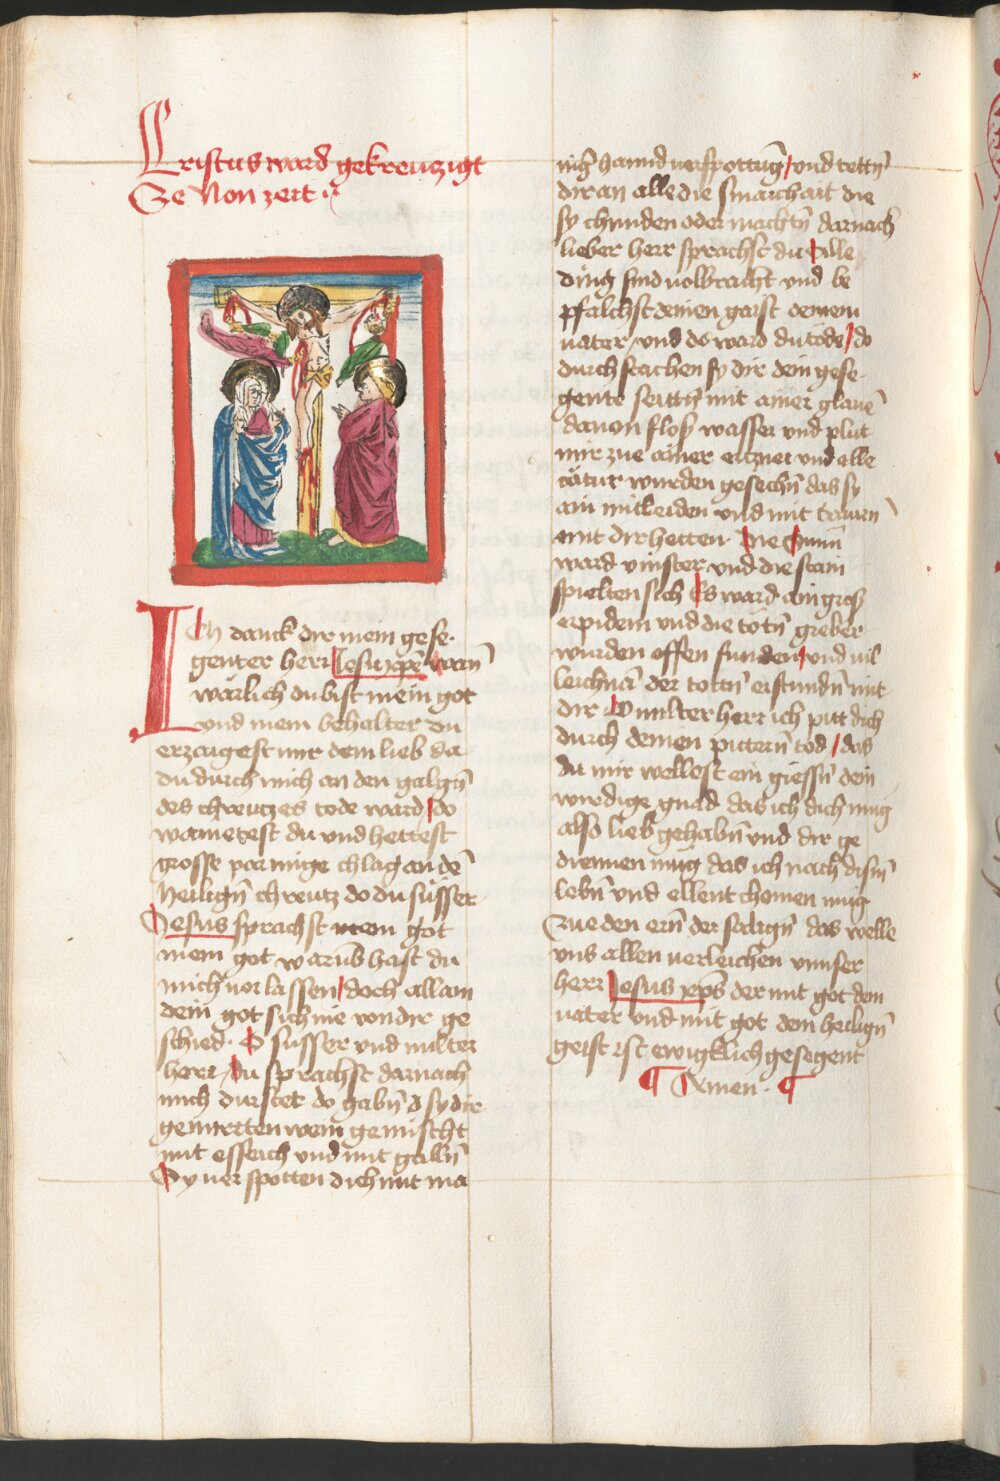 Cristus ward gekreuczigt
Ze Non zeit
Ich danck dir mein gese¬
genter herr Jesu xp̄e wann̄
wärlich du bist mein got
vnd mein behalter du
erzaigest mir dein lieb da
du durch mich an den galgn̄
des chreutzes tode ward / do
wainetest du und hettest
grosse parmige chlag an dē
heilign̄ chreutz do du süsser
Jesus sprachst mein got
mein got warūb hast du
mich verlassen / doch allain
dein got sich nie von dir ge
schied. O süsser vnd milter
herr / du sprachst darnach
mich dürstet do gabn̄d sy dir
gemirrten wein gemischt
mit essich vnd mit galln̄
Sy verspotten dich mit ma
niḡ hannd verspottūg / vnd tettn̄
dir an alle die smachait die
sy chunden oder machtn̄ darnach
lieber herr sprachst du Alle
ding sind volbracht vnd be
pfalchst deinen gaist deinem
vater / vnd do ward du tode / do
durch stachen sy dir dein gese¬
gente seittn̄ mit ainer glauē
dauon flos wasser vnd plut
mir zue ainer ertznei vnd alle
catur wurden gesechn̄ das sy
ain mitleiden vnd mit trawrn̄
mit dir hetten. Die Sunn
ward vinster vnd die stain
spielten sich Es ward ain gros
erpidem vnd die totn̄ greber
wurden offen funden / vnd vil
leichnā der tottn̄ erstundn̄ mit
dir O milter herr ich pitt dich
durch deinen pittern̄ tod / das
du mir wellest ein giessn̄ dein
wirdige gnad das ich dich mug
also lieb gehabn̄ vnd dir ge
diennen mug das ich nach disn̄
lebn̄ vnd ellent chomen mug
zue den ern̄ der sälign̄ das welle
vns allen verleichen vnnser
herr Jesus xp̄s der mit got dem
vater vnd mit got dem heilign̄
geist ist ewigklich gesegent
¶ Amen. ¶